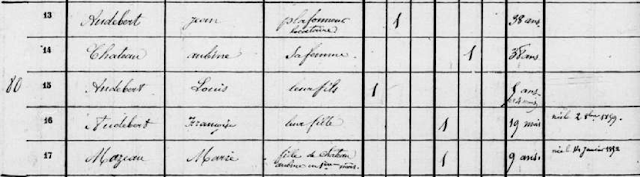 13 Audebert jean plafonneur 1 38 ans
locataire
14 Chateau aubine sa femme 1 38 ans
80 15 Audebert Louis leur fils 1 5 ans
16 Audebert Françoise leur fille 1 19 mois née le 2 1859.
17 Mazeau Marie fille de Chateau 1 9 ans. née le 14 janvier 1852